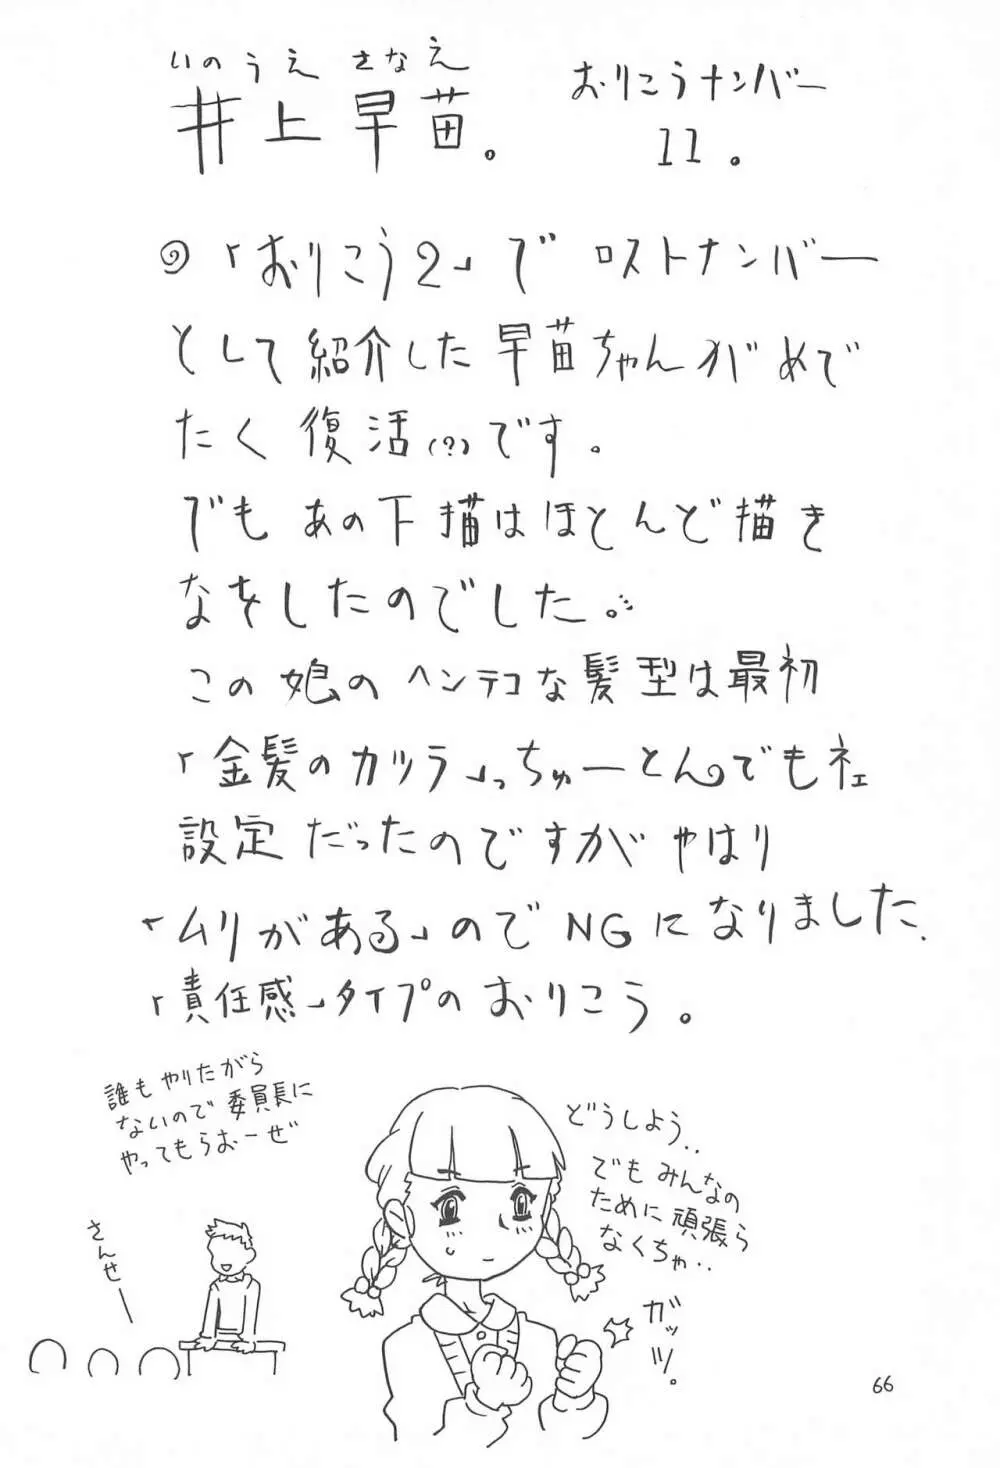 いのうえ さなえ
井上早苗。
おりこうナンバー
11。
◎「おりこう2」で ロストナンバー
として紹介した早苗ちゃんがめで
たく復活(?)です。
でもあの下描はほとんど描き
なをしたのでした。
この娘のヘンテコな髪型は最初
「金髪のカツラ」っちゅーとんでもネェ
設定だったのですがやはり
「ムリがある」のでNGになりました.
「責任感」タイプのおりこう。
誰もやりたがら
ないので委員長に
やってもらおーぜ
さんせー
どうしよう..
でもみんなの
ために頑張ら
なくちゃ..
ガッツ。
66